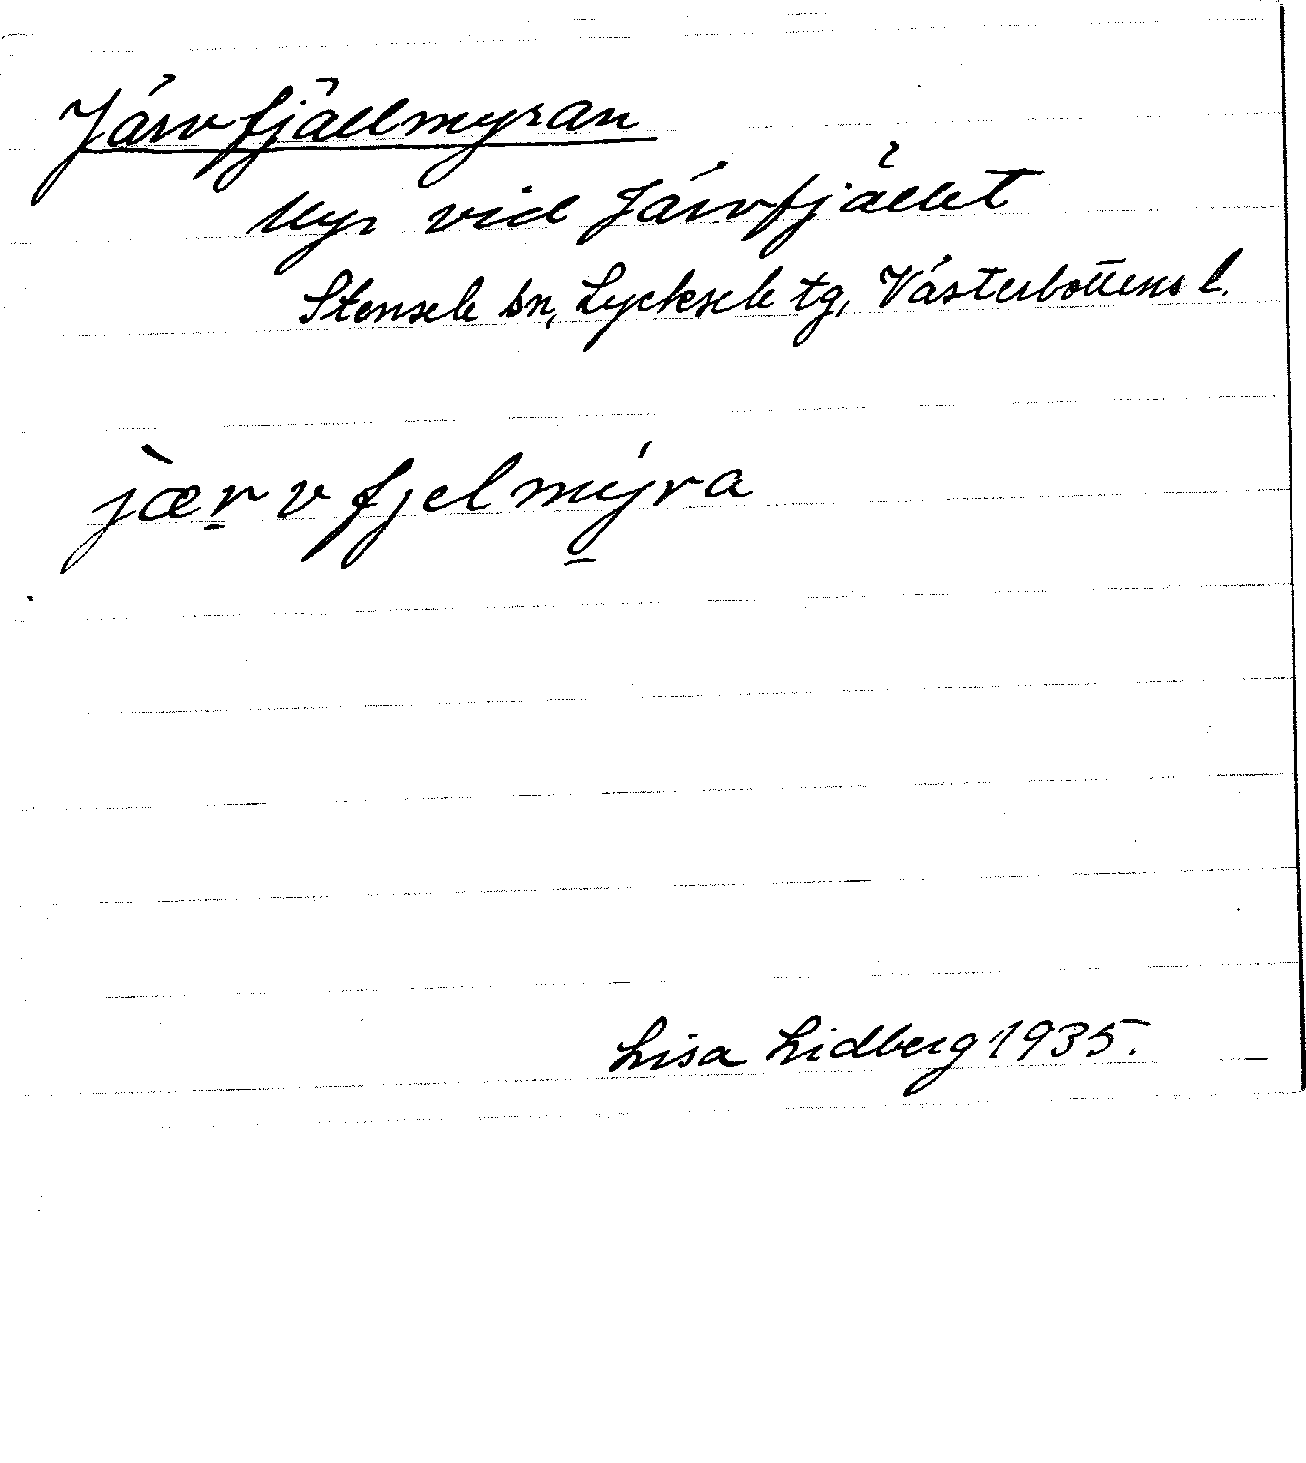 Järvfjällmyran
Myr vid Järvfjället
Stensele sn, Lycksele tg, Västerbottens l.
jæ̀rvfjelmýra
Lisa Lidberg 1935.